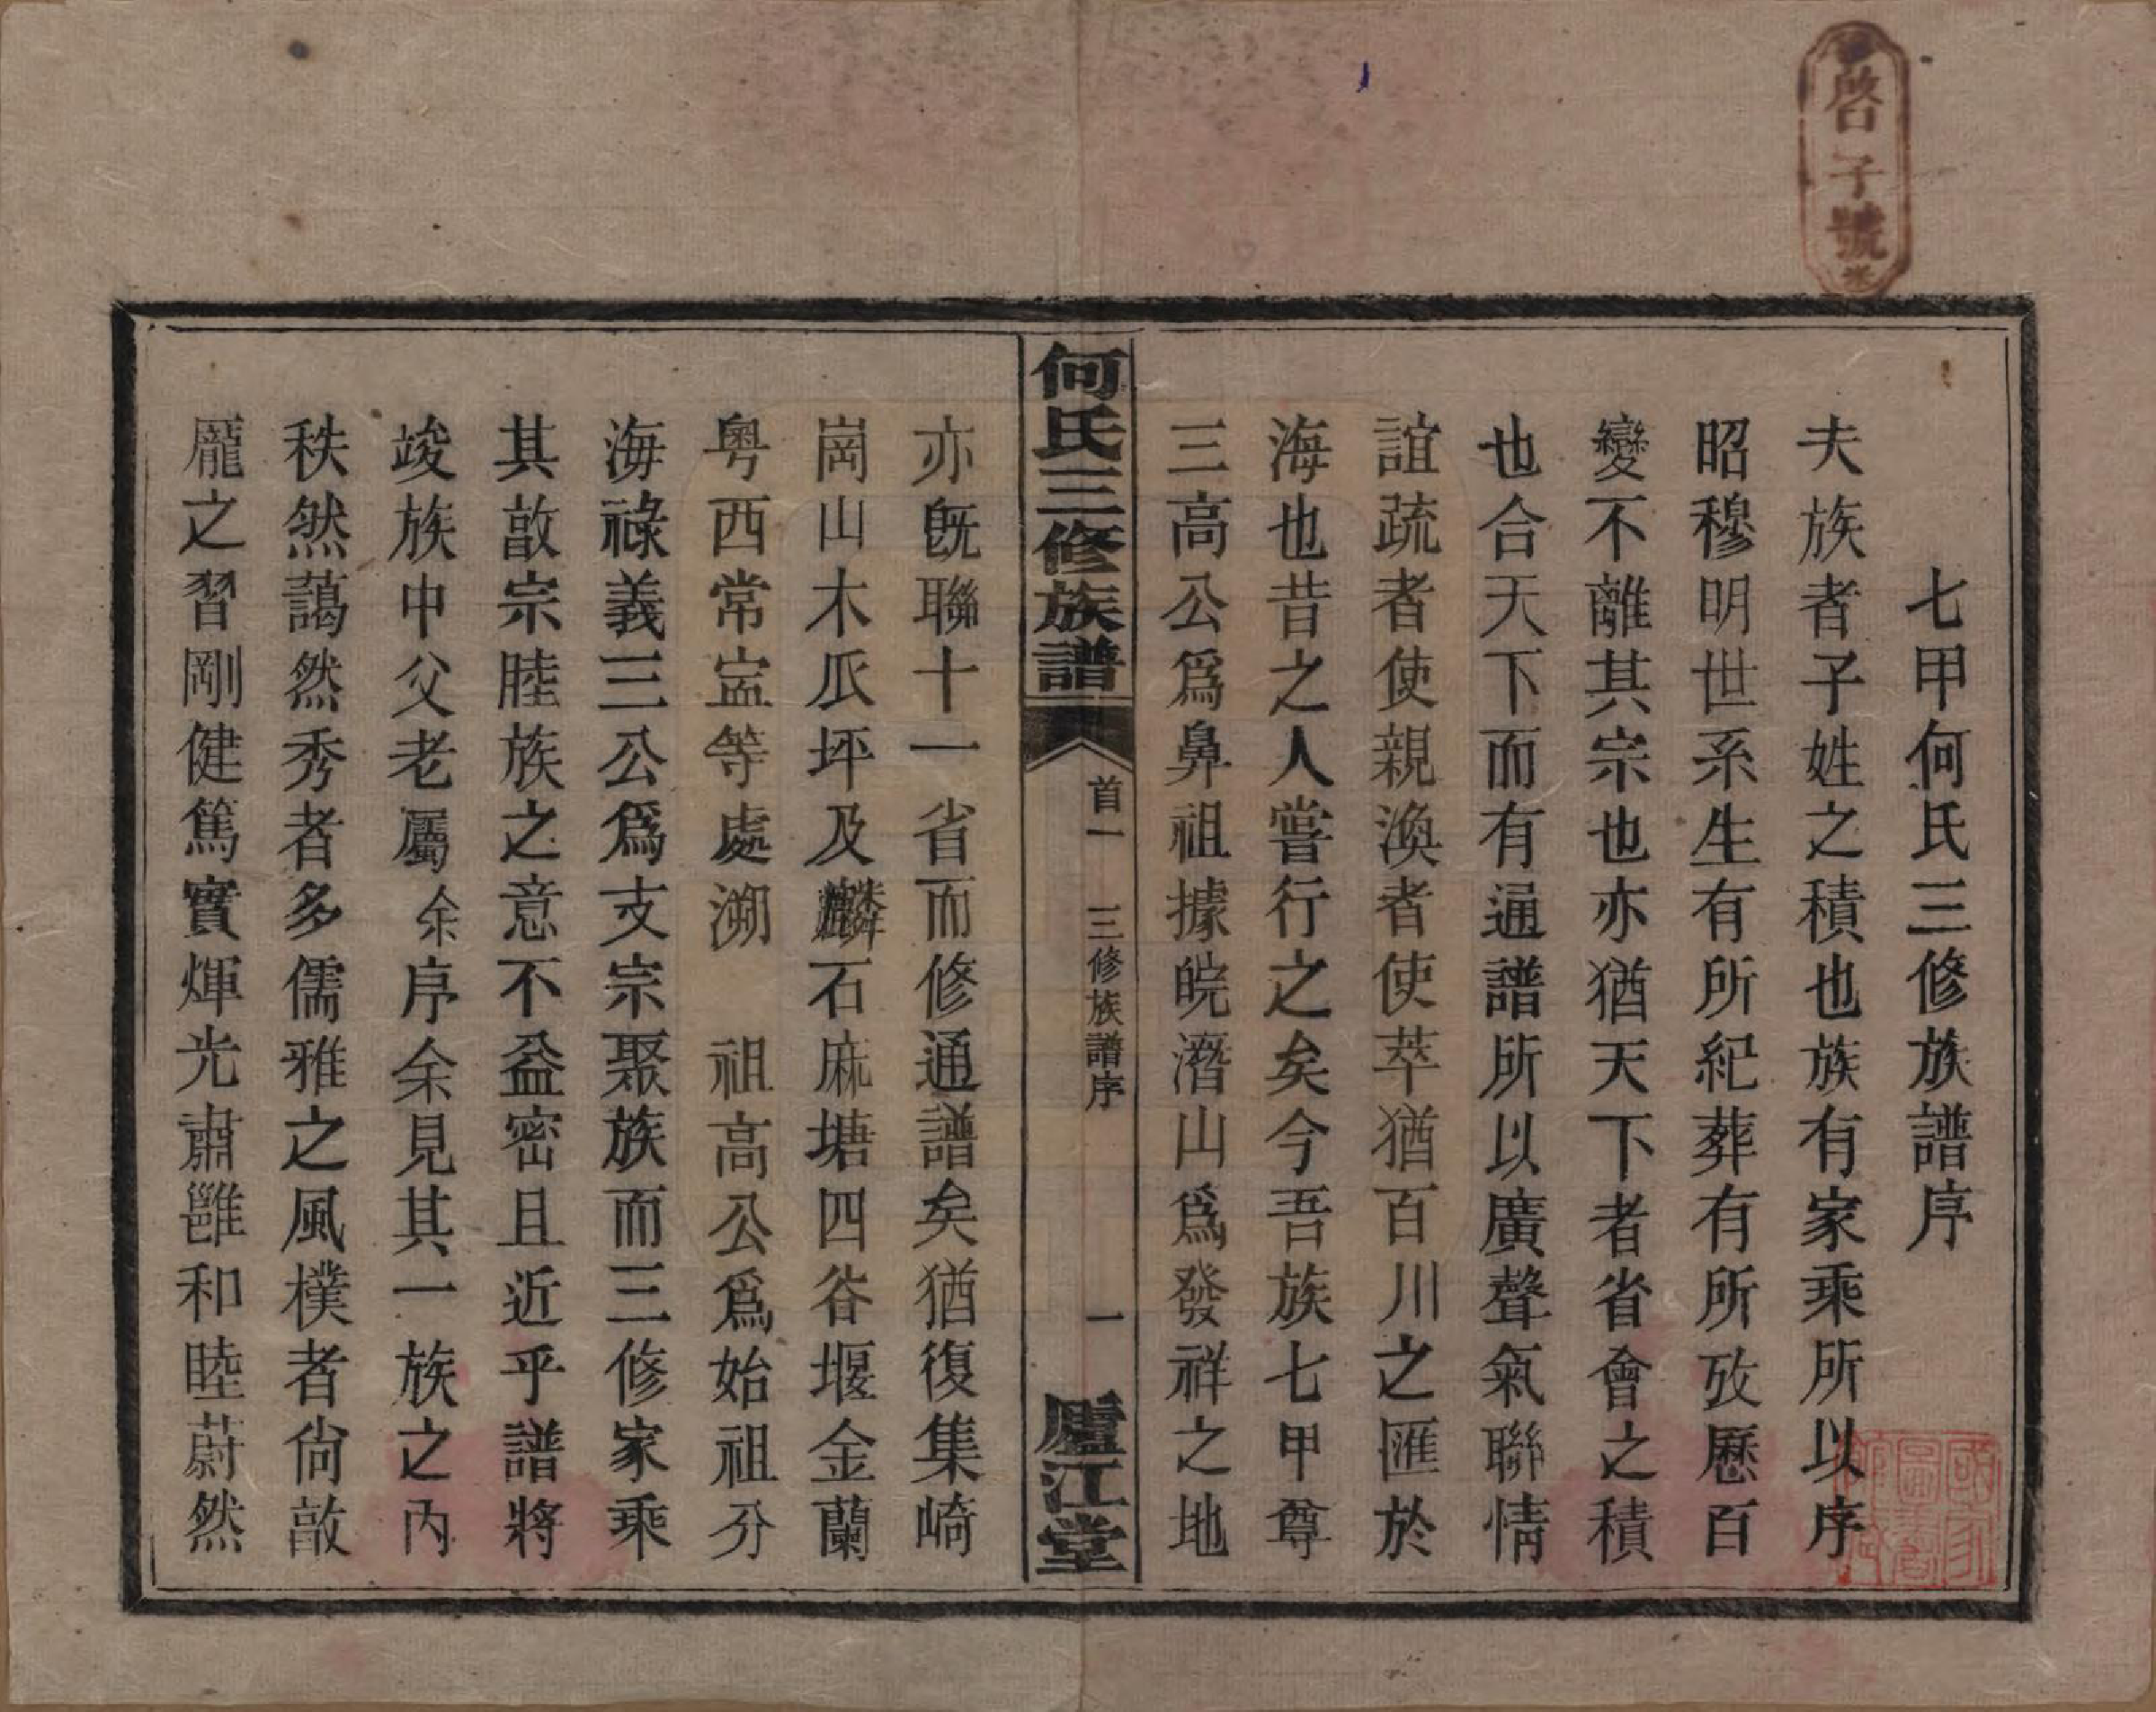 啓字號
七甲何氏三修族譜序
夫族者子姓之積也族有家乘所以序
昭穆明世系生有所紀葬有所攷歷百
變不離其宗也亦猶天下者省會之積
也合天下而有通譜所以廣聲氣聯情
誼疏者使親渙者使萃猶百川之匯於
海也昔之人嘗行之矣今吾族七甲尊
三高公爲鼻祖據皖潛山爲發祥之地
何氏三修族譜
首一
三修族譜序
一
廬江堂
亦旣聯十一省而修通譜矣猶復集崎
崗山木瓜坪及麟石麻塘四谷堰金蘭
粤西常寍等處溯 祖高公爲始祖分
海祿義三公爲支宗聚族而三修家乘
其敨宗睦族之意不益密且近乎譜將
竣族中父老屬余序余見其一族之內
秩然藹然秀者多儒雅之風樸者尙敨
龐之習剛健篤實煇光肅雝和睦蔚然